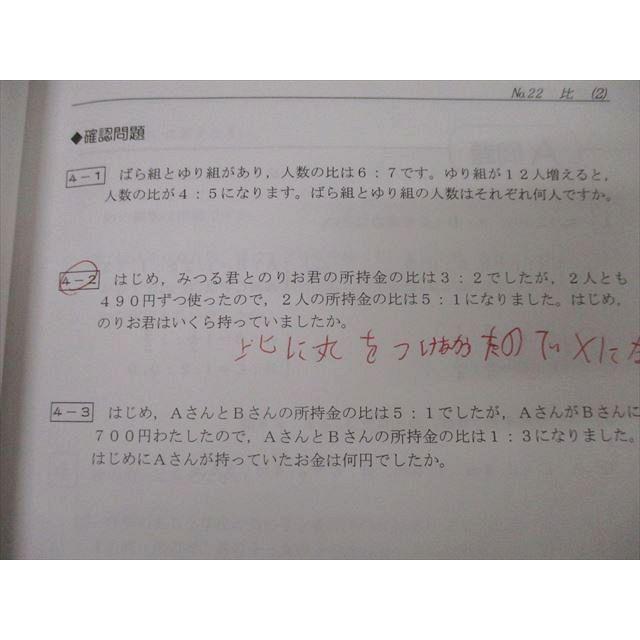 No.22 比 (2)
◆確認問題
4－1 ばら組とゆり組があり，人数の比は６：７です。ゆり組が１２人増えると，
人数の比が４：５になります。ばら組とゆり組の人数はそれぞれ何人ですか。
4－2 はじめ，みつる君とのりお君の所持金の比は３：２でしたが，２人とも
４９０円ずつ使ったので，２人の所持金の比は５：１になりました。はじめ，
のりお君はいくら持っていましたか。
比に丸をつけ
4－3 はじめ，ＡさんとＢさんの所持金の比は５：１でしたが，ＡさんがＢさんに
７００円わたしたので，ＡさんとＢさんの所持金の比は１：３になりました。
はじめにＡさんが持っていたお金は何円でしたか。